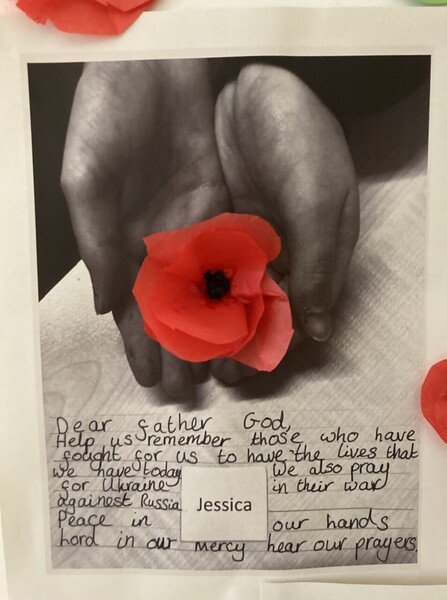 Dear father God,
Help us remember those who have
fought for us to have the lives that
we have today We also pray
for Ukraine in their war
againest Russia
Jessica
Peace in our hands
hord in our mercy hear our prayers.